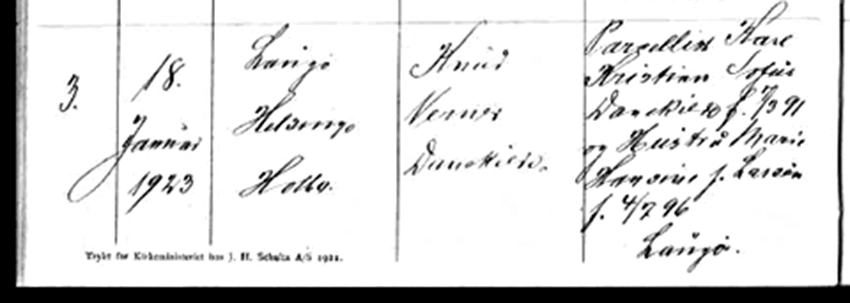 3.
18.
Januar
1923
Laugø
Helsinge
Holbo.
Knud
Verner
Danekilde.
Parcellist Kare
Kristian Sofus
f. 7/3 91
og Hustru Marie
Hansine f. Larsen
f. 4/7 96
Laugø.
Trykt for Kirkeministeriet hos J. H. Schultz A/S 1921.